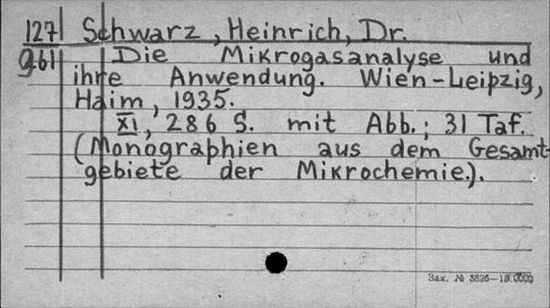 127 Schwarz, Heinrich, Dr.
961 Die Mikrogasanalyse und
ihre Anwendung. Wien-Leipzig,
Haim, 1935.
XI, 286 S. mit Abb.; 31 Taf.
(Monographien aus dem Gesamt-
gebiete der Mikrochemie.).
Зак. №